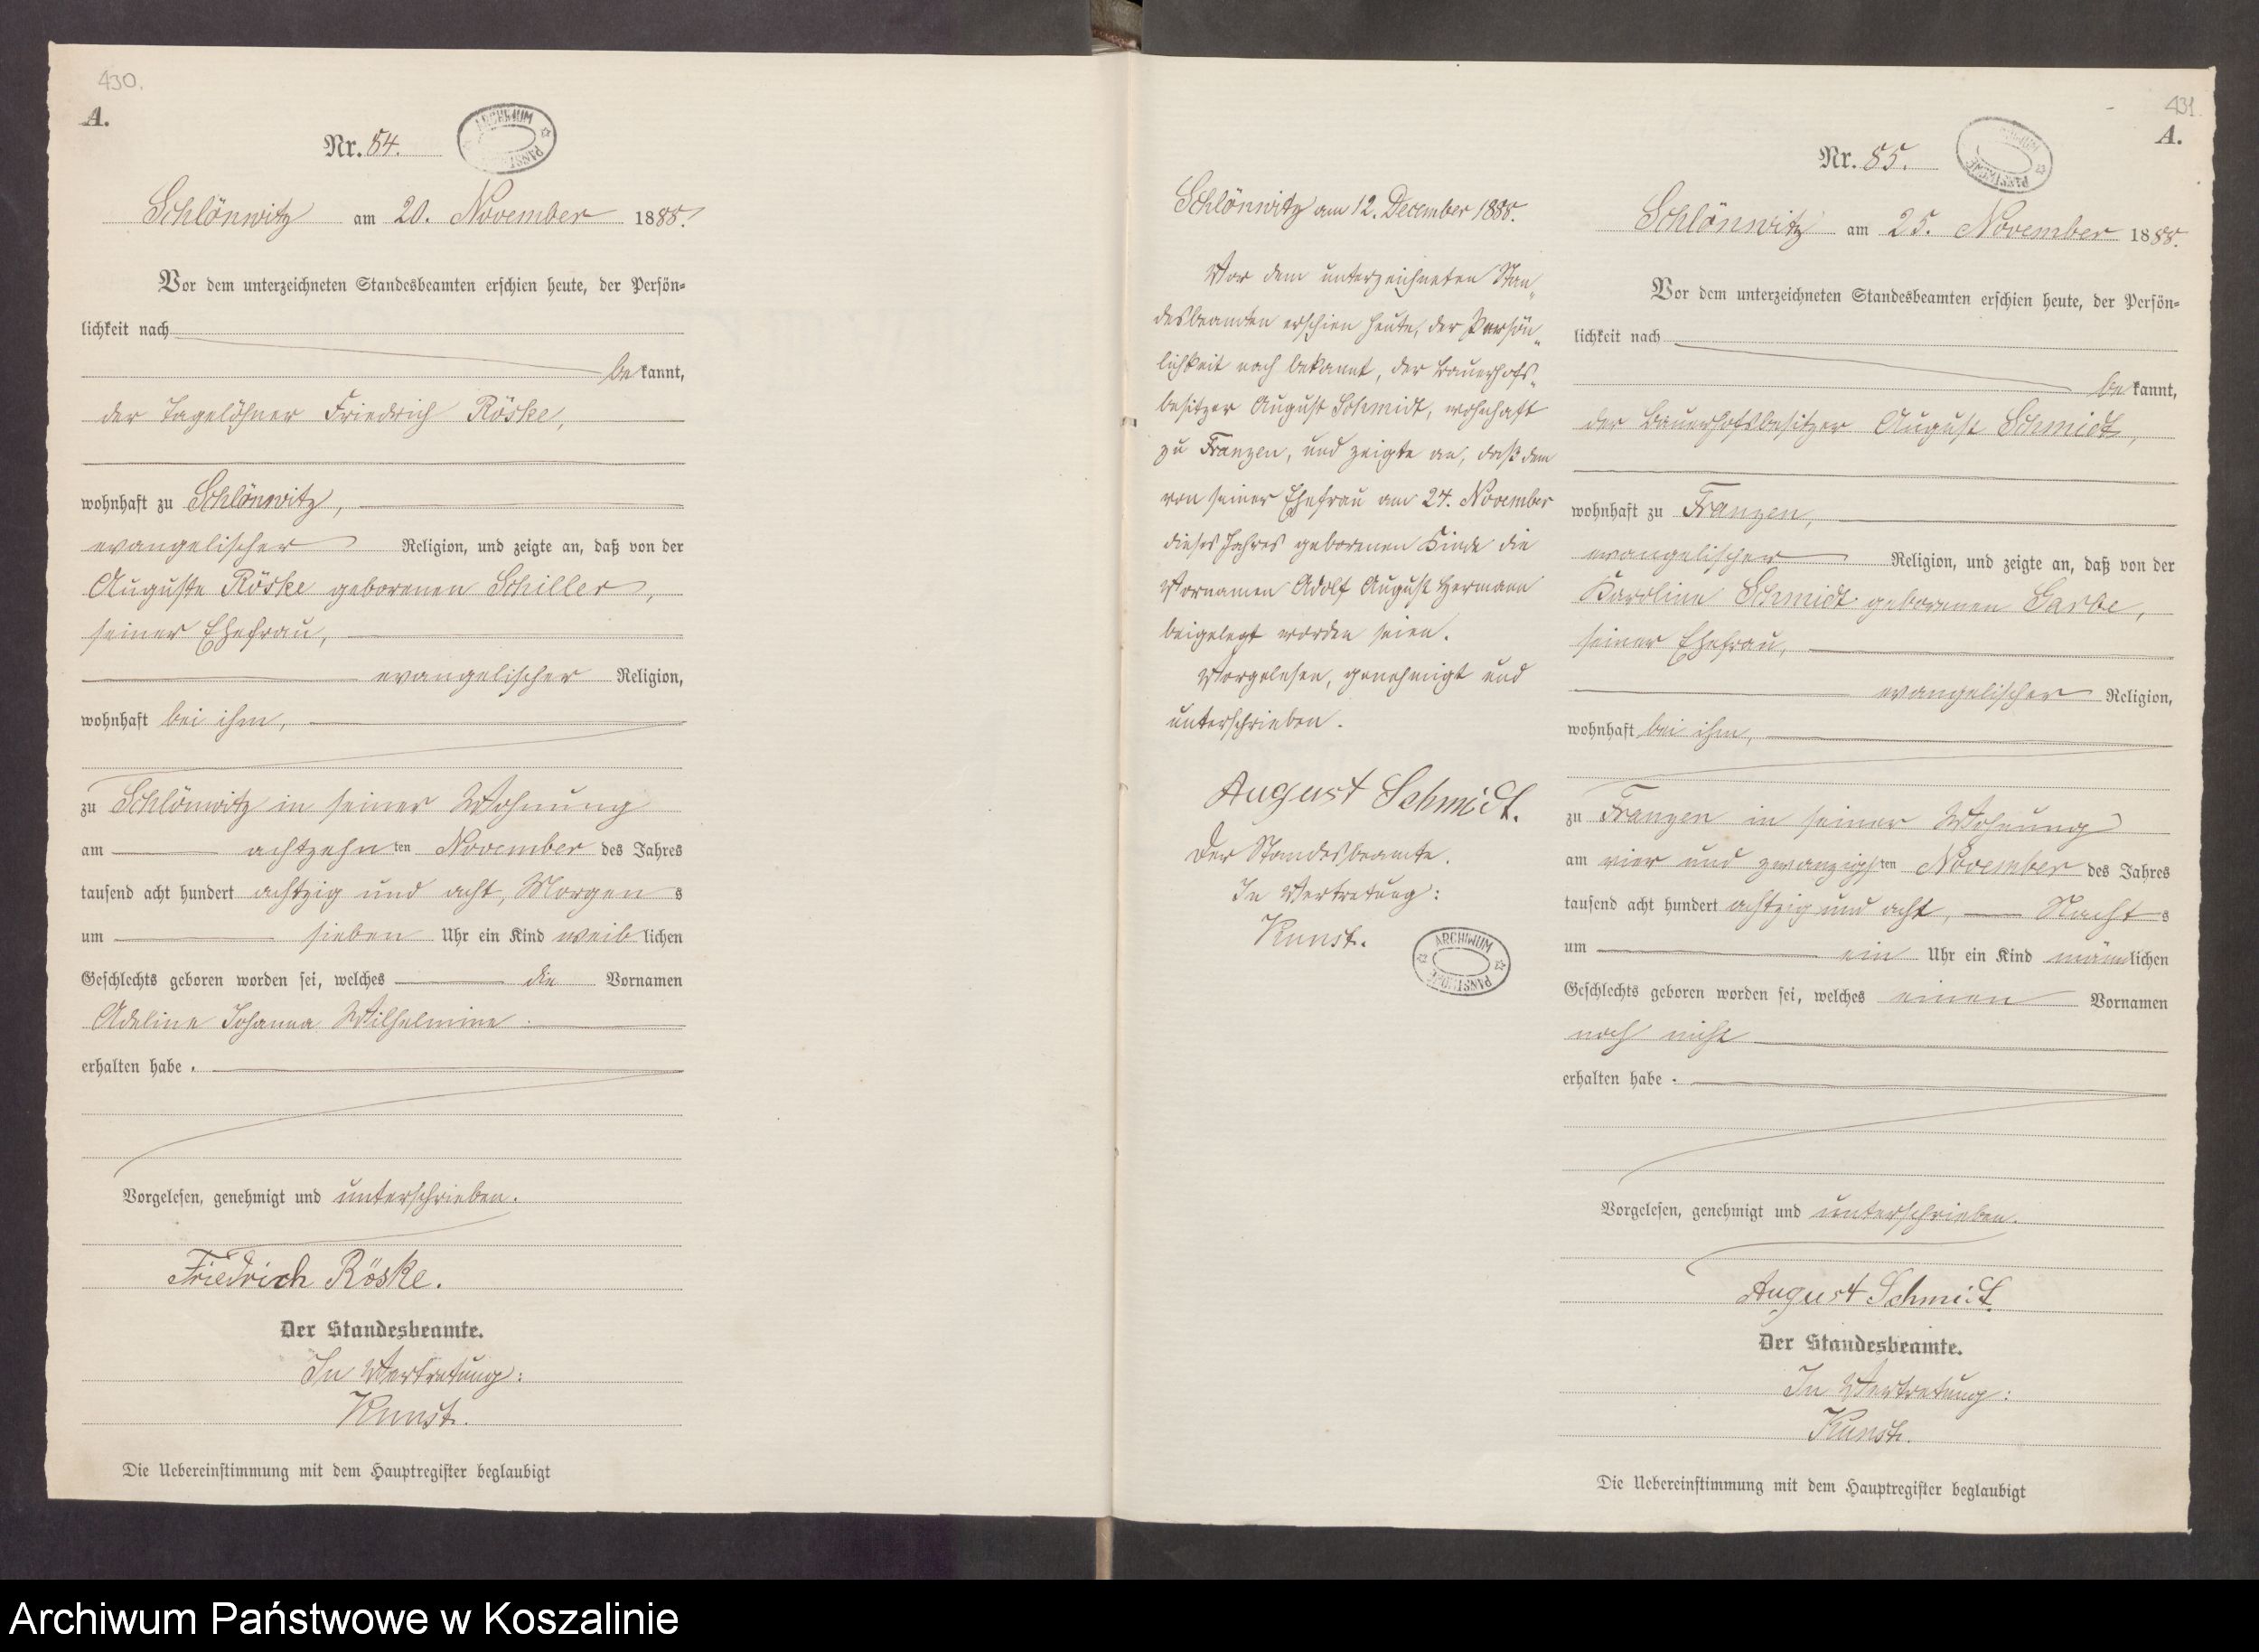 430.
A.
Nr. 54.
ARCHIWUM PAŃSTWOWE
Schlönwitz am 20. November 1888.
Vor dem unterzeichneten Standesbeamten erschien heute, der Persön=
lichkeit nach
bekannt,
der Tagelöhner Friedrich Röske,
wohnhaft zu Schlönwitz,
evangelischer Religion, und zeigte an, daß von der
Auguste Röske geborenen Schiller,
seiner Ehefrau,
evangelischer Religion,
wohnhaft bei ihm,
zu Schlönwitz in seiner Wohnung
am achtzehnten November des Jahres
tausend acht hundert achtzig und acht, Morgens
um sieben Uhr ein Kind weiblichen
Geschlechts geboren worden sei, welches die Vornamen
Adeline Johanna Wilhelmine
erhalten habe.
Vorgelesen, genehmigt und unterschrieben.
Friedrich Röske.
Der Standesbeamte.
In Vertretung:
Kunst.
Die Uebereinstimmung mit dem Hauptregister beglaubigt
Schlönwitz am 12. December 1888.
Vor dem unterzeichneten Stan„
desbeamten erschien heute, der Persön„
lichkeit nach bekannt, der Bauerhofs„
besitzer August Schmidt, wohnhaft
zu Franzen, und zeigte an, daß dem
von seiner Ehefrau am 24. November
dieses Jahres geborenen Kinde die
Vornamen Adolf August Hermann
beigelegt worden seien.
Vorgelesen, genehmigt und
unterschrieben.
August Schmidt.
Der Standesbeamte.
In Vertretung:
Kunst.
ARCHIWUM PAŃSTWOWE
431.
A.
Nr. 55.
ARCHIWUM PAŃSTWOWE
Schlönwitz am 25. November 1888.
Vor dem unterzeichneten Standesbeamten erschien heute, der Persön=
lichkeit nach
bekannt,
der Bauerhofsbesitzer August Schmidt,
wohnhaft zu Franzen,
evangelischer Religion, und zeigte an, daß von der
Karoline Schmidt geborenen Garbe,
seiner Ehefrau,
evangelischer Religion,
wohnhaft bei ihm,
zu Franzen in seiner Wohnung
am vier und zwanzigsten November des Jahres
tausend acht hundert achtzig und acht, Nachts
um ein Uhr ein Kind männlichen
Geschlechts geboren worden sei, welches einen Vornamen
noch nicht
erhalten habe.
Vorgelesen, genehmigt und unterschrieben.
August Schmidt.
Der Standesbeamte.
In Vertretung:
Kunst.
Die Uebereinstimmung mit dem Hauptregister beglaubigt
Archiwum Państwowe w Koszalinie